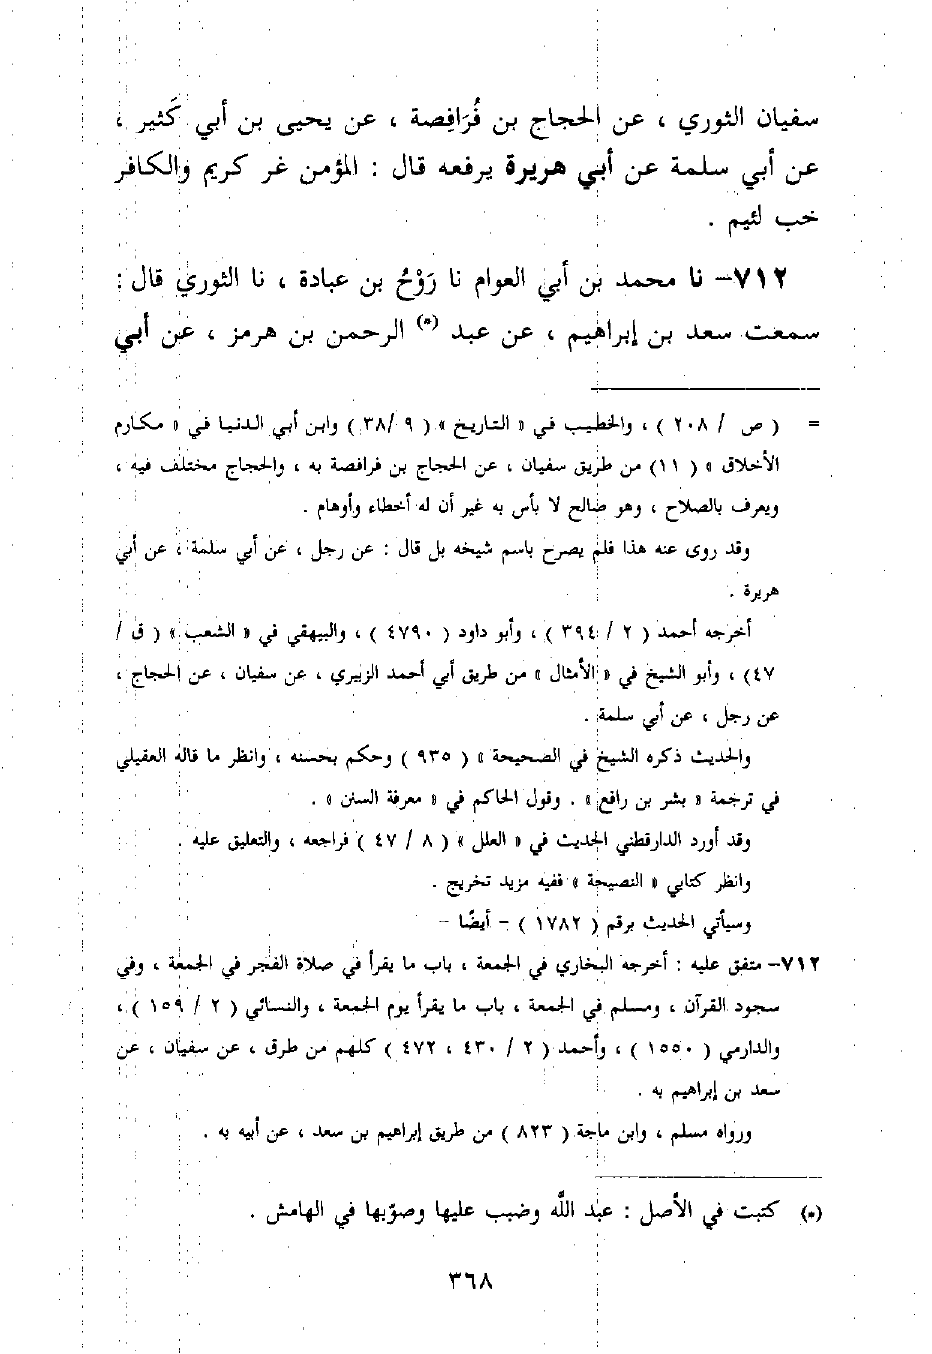 سفيان الثوري ، عن الحجاج بن فُرَافِصة ، عن يحيى بن أبي كَثير ،
عن أبي سلمة عن أبي هريرة يرفعه قال : المؤمن غر كريم والكافر
خب لئيم .
٧١٢- نا محمد بن أبي العوام نا رَوْحُ بن عبادة ، نا الثوري قال :
سمعت سعد بن إبراهيم ، عن عبد (*) الرحمن بن هرمز ، عن أبي
= ( ص / ٢٠٨ ) ، والخطيب في « التاريخ » ( ٩ /٣٨ ) وابن أبي الدنيا في « مكارم
الأخلاق » ( ١١ ) من طريق سفيان ، عن الحجاج بن فرافصة به ، والحجاج مختلف فيه ،
ويعرف بالصلاح ، وهو صالح لا بأس به غير أن له أخطاء وأوهام .
وقد روى عنه هذا فلم يصرح باسم شيخه بل قال : عن رجل ، عن أبي سلمة ، عن أبي
هريرة .
أخرجه أحمد ( ٢ / ٣٩٤ ) ، وأبو داود ( ٤٧٩٠ ) ، والبيهقي في « الشعب » ( ق /
٤٧) ، وأبو الشيخ في « الأمثال » من طريق أبي أحمد الزبيري ، عن سفيان ، عن الحجاج ،
عن رجل ، عن أبي سلمة .
والحديث ذكره الشيخ في الصحيحة » ( ٩٣٥ ) وحكم بحسنه ، وانظر ما قاله العقيلي
في ترجمة « بشر بن رافع » . وقول الحاكم في « معرفة السنن » .
وقد أورد الدارقطني الحديث في « العلل » ( ٨ / ٤٧ ) فراجعه ، والتعليق عليه .
وانظر كتابي « النصيحة » ففيه مزيد تخريج .
وسيأتي الحديث برقم ( ١٧٨٢ ) - أيضًا -
٧١٢- متفق عليه : أخرجه البخاري في الجمعة ، باب ما يقرأ في صلاة الفجر في الجمعة ، وفي
سجود القرآن ، ومسلم في الجمعة ، باب ما يقرأ يوم الجمعة ، والنسائي ( ٢ / ١٥٩ ) ،
والدارمي ( ١٥٥٠ ) ، وأحمد ( ٢ / ٤٣٠ ، ٤٧٢ ) كلهم من طرق ، عن سفيان ، عن
سعد بن إبراهيم به .
ورواه مسلم ، وابن ماجة ( ٨٢٣ ) من طريق إبراهيم بن سعد ، عن أبيه به .
(*) كتبت في الأصل : عبد اللَّه وضبب عليها وصوّبها في الهامش .
٣٦٨